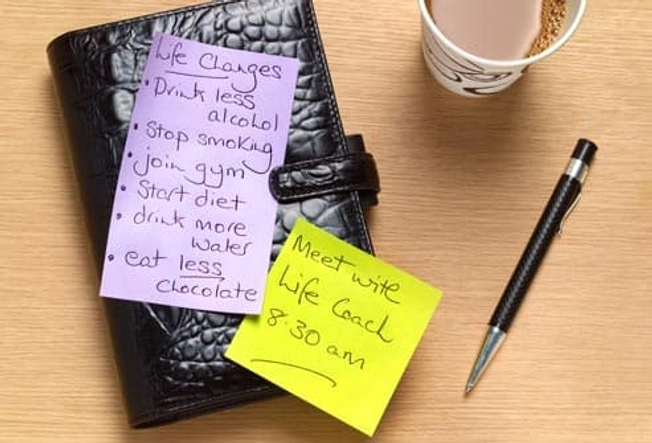 Life Changes
• Drink less
alcohol
• Stop smoking
• join gym
• Start diet
• drink more
water
• eat less
chocolate
Meet with
Life Coach
8.30 am